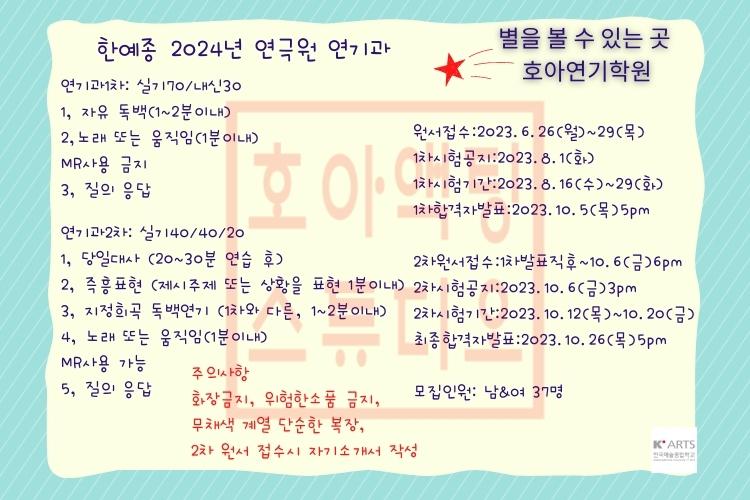 한예종 2024년 연극원 연기과
별을 볼 수 있는 곳
호아연기학원
연기과1차: 실기70/내신30
1, 자유 독백(1~2분이내)
2,노래 또는 움직임(1분이내)
MR사용 금지
3, 질의 응답
연기과2차: 실기40/40/20
1, 당일대사 (20~30분 연습 후)
2, 즉흥표현 (제시주제 또는 상황을 표현 1분이내)
3, 지정희곡 독백연기 (1차와 다른, 1~2분이내)
4, 노래 또는 움직임(1분이내)
MR사용 가능
5, 질의 응답
원서접수:2023.6.26(월)~29(목)
1차시험공지:2023.8.1(화)
1차시험기간:2023.8.16(수)~29(화)
1차합격자발표:2023.10.5(목)5pm
2차원서접수:1차발표직후~10.6(금)6pm
2차시험공지:2023.10.6(금)3pm
2차시험기간:2023.10.12(목)~10.20(금)
최종합격자발표:2023.10.26(목)5pm
모집인원: 남&여 37명
주의사항
화장금지, 위험한소품 금지,
무채색 계열 단순한 복장,
2차 원서 접수시 자기소개서 작성
호아액팅
스튜디오
K ARTS
한국예술종합학교